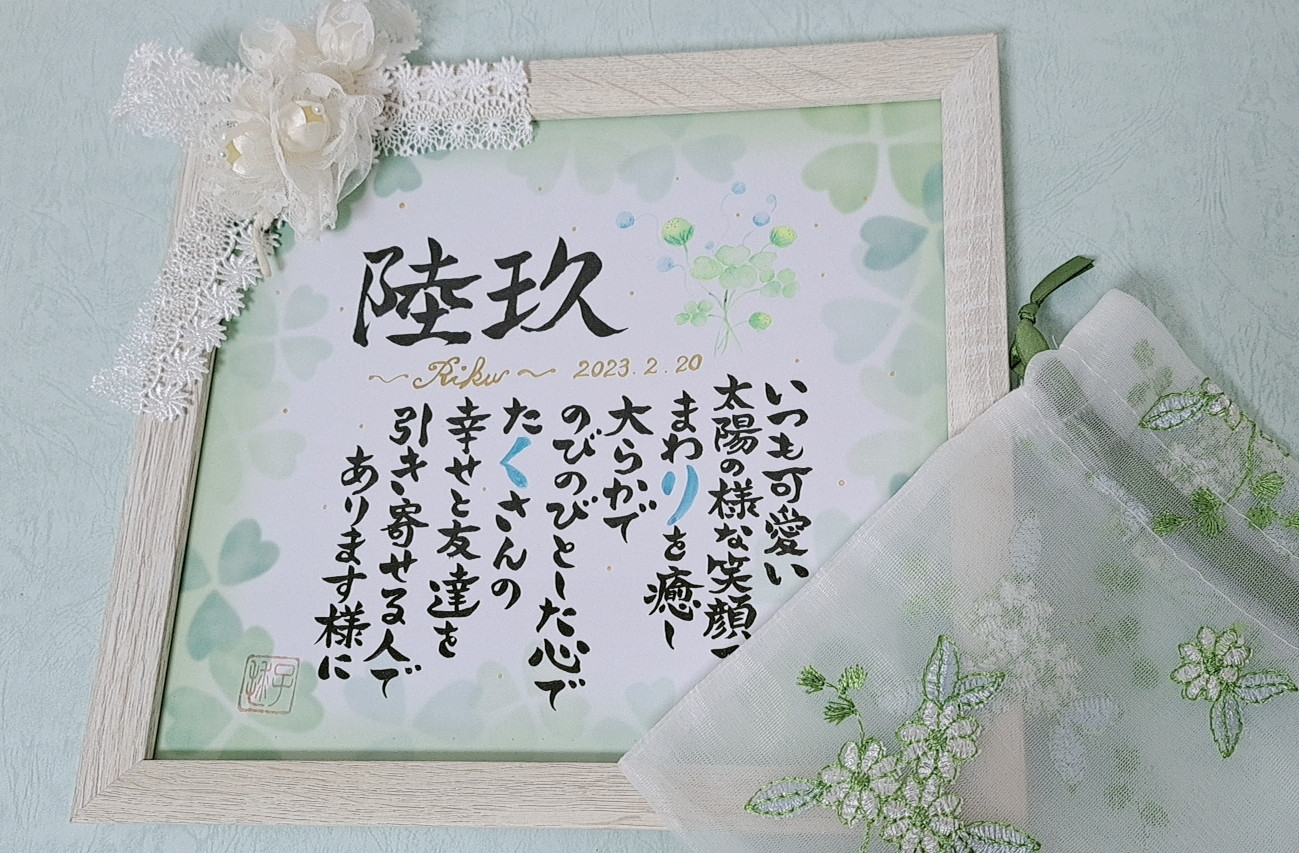 陸玖
～Riku～ 2023.2.20
いつも可愛い
太陽の様な笑顔
まわりを癒し
大らかで
のびのびとした心で
たくさんの
幸せと友達を
引き寄せる人で
あります様に